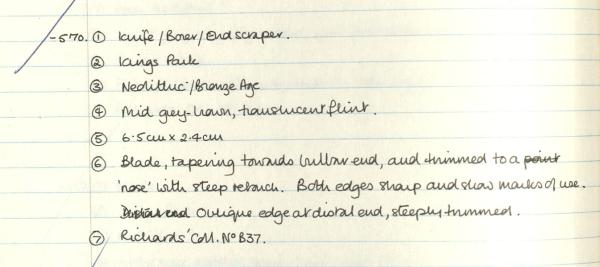 -570. ① Knife/Borer/Endscraper.
② Kings Park
③ Neolithic/Bronze Age
④ Mid grey-brown, translucent flint.
⑤ 6.5cm x 2.4cm
⑥ Blade, tapering towards bulbar end, and trimmed to a point
'nose' with steep retouch. Both edges sharp and show marks of use.
Distal end Oblique edge at distal end, steeply trimmed.
⑦ Richards' Coll. Nº B37.